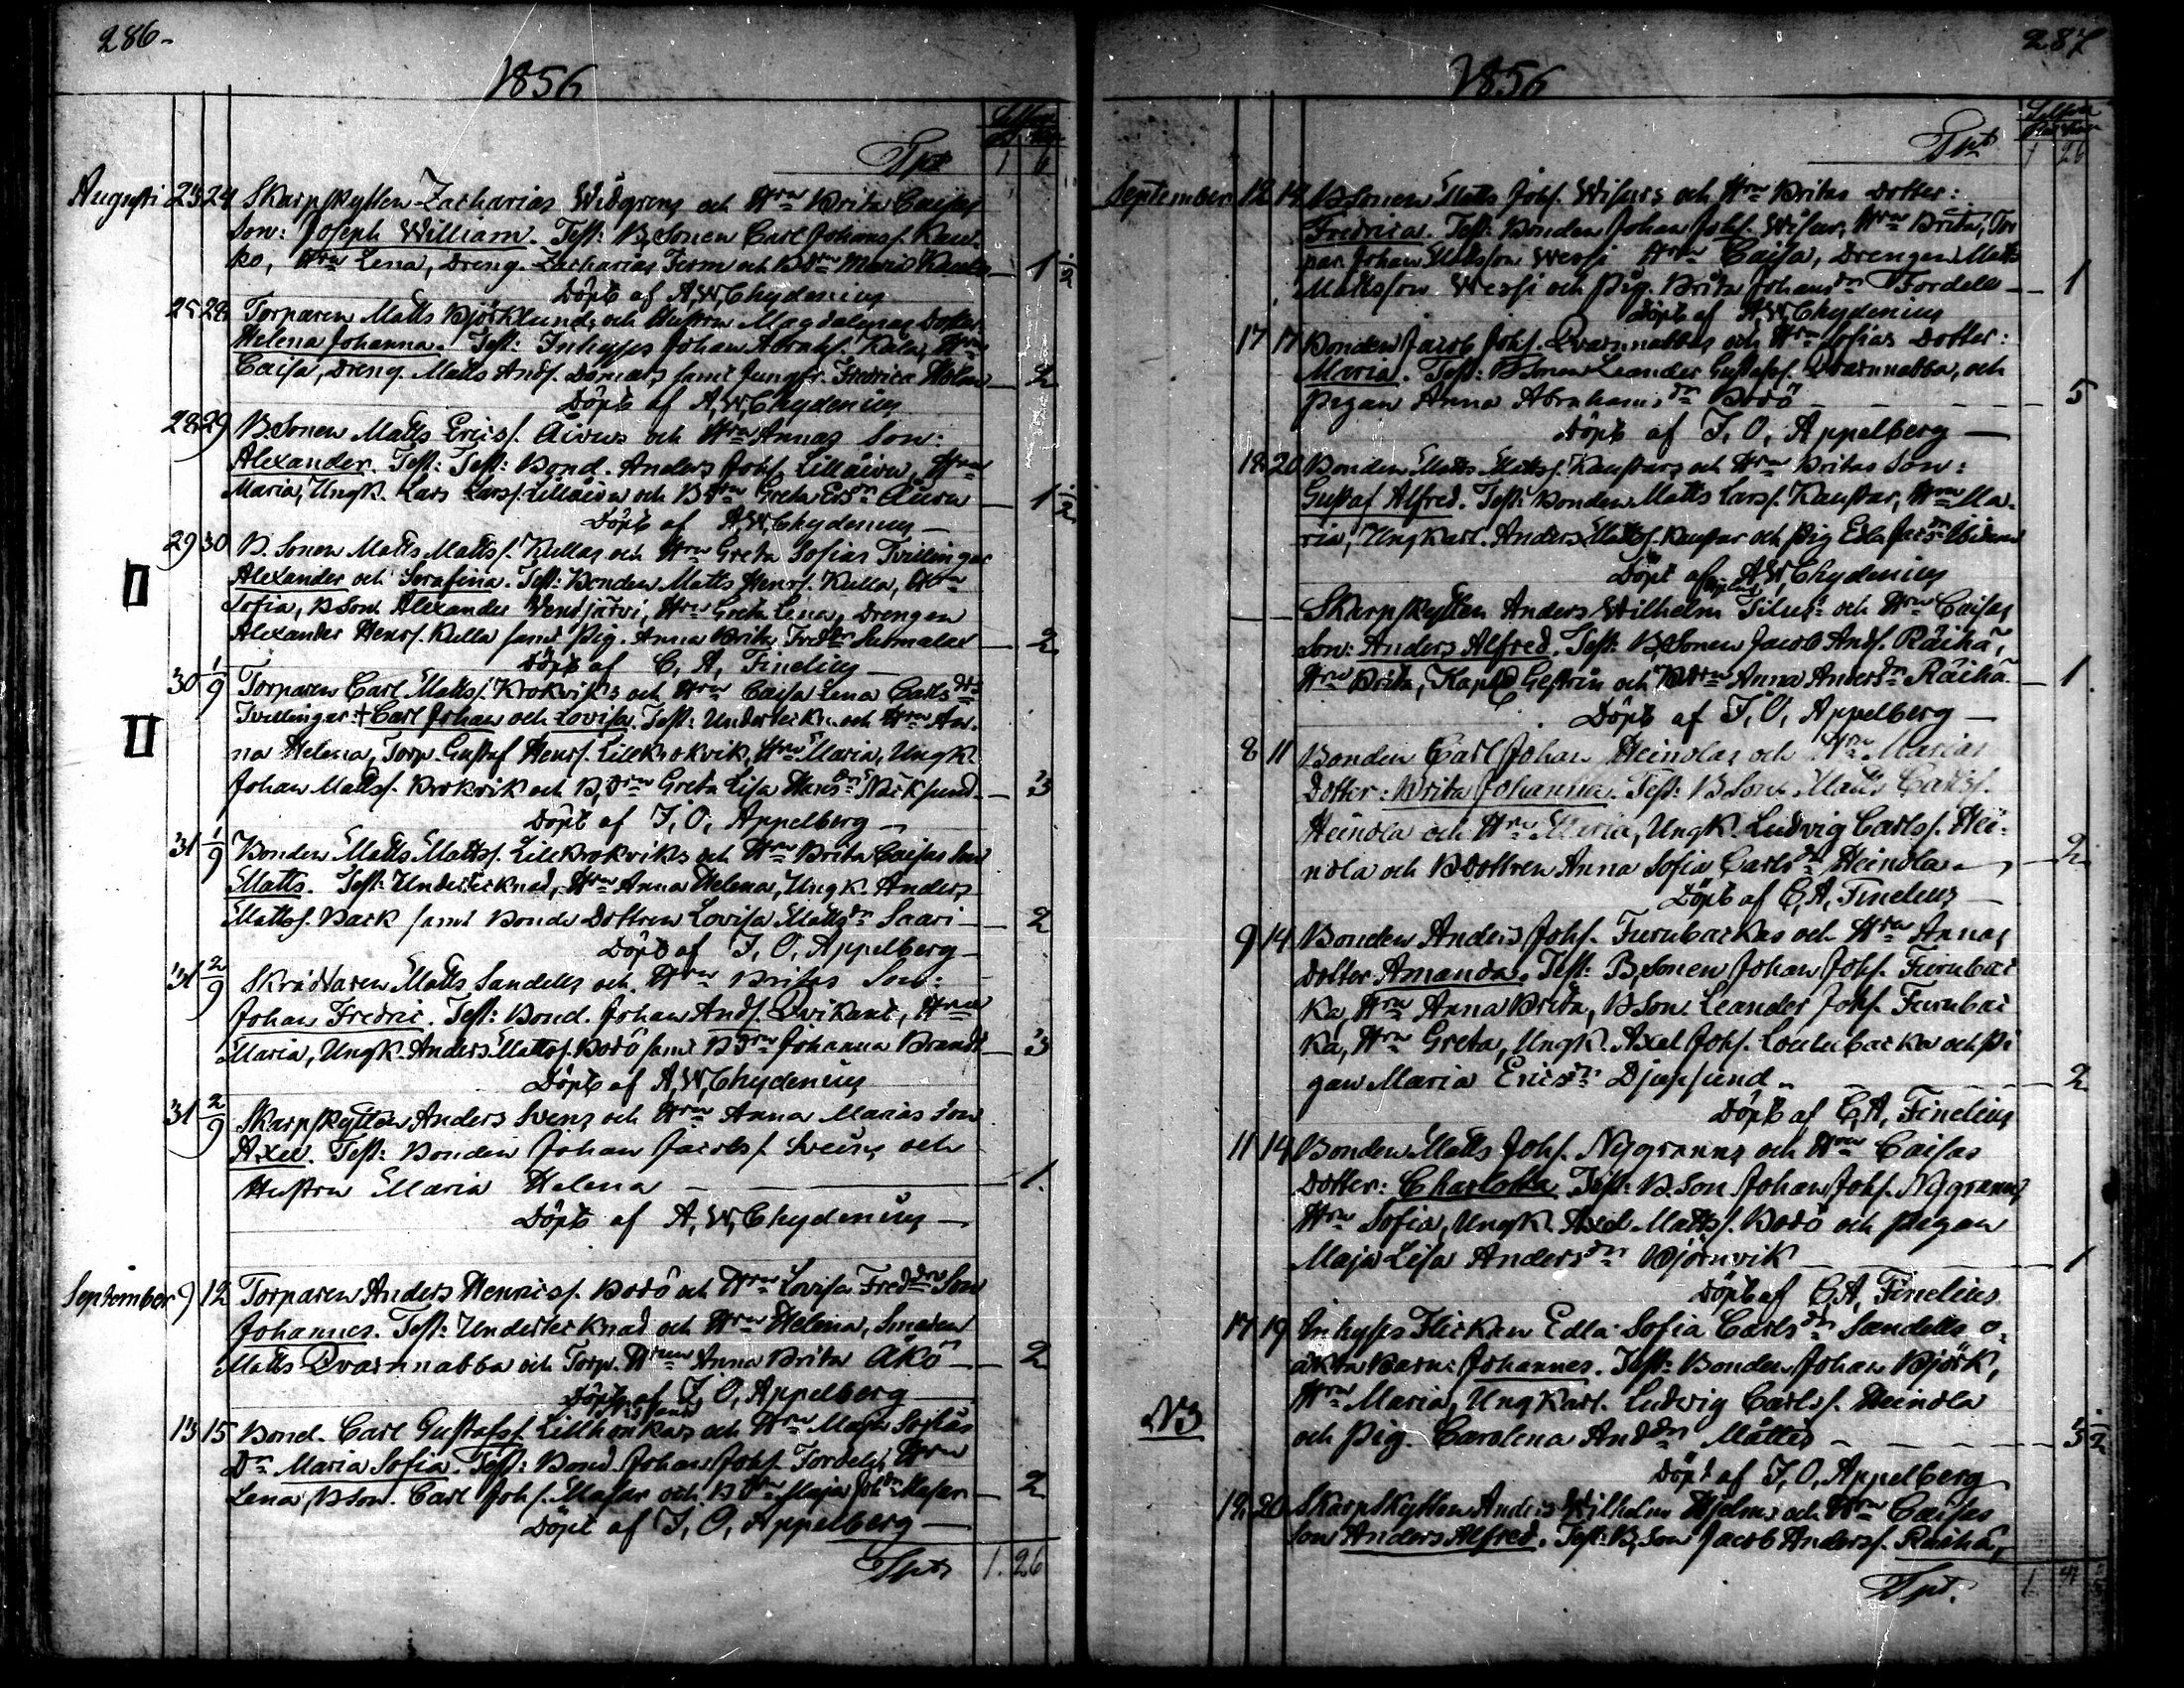 286-
1856
Silfver
Tpt 1 6
Augusti 23 24 Skarpskytten Zacharias Widgrens och Hrn Brita Caisas
Son: Joseph William. Test: B,Sonen Carl Johans. Kauk-
ko, Hru Lena, Dreng. Zacharias Ferm och Bdrn Maria Kauko — 1 1/2
Döpt af A,W,Chydenius
25 28 Torparen Matts Björklunds och Hustrun Magdalenas Dotter:
Helena Johanna. Test: Inhyses Johan Abrahs. Kala, Hru
Caisa, Dreng. Matts Ands. samt Jungfr. Fredrica Holm — 2
Döpt af A,W,Chydenius
28 29 B.Sonen Matts Erics. Äivus och Hru Annas Son:
Alexander. Test: Test: Bond. Anders Johs. Lilläivu, Hru
Maria, Ungk. Lars Larss. Lilläivu och Bdrn Greta Ersdr Äivu — 1 1/2
Döpt af A,W,Chydenius —
29 30 B.Sonen Matts Matts. Kullas och Hru Greta Sofias Tvillingar
Alexander och Serafina. Test: Bonden Matts Henrs. Kulla, Hru
Sofia, BSon. Alexander Wentjärvi, Hru Greta Lena, Drengen
Alexander Henrs. Kulla samt Pig. Anna Brita Fredr — 2
Döpt af C, A, Finelius —
II
30 1/9 Torparen Carl Matts. Krokviks och Hru Caisa Lena Carlsdrs
Tvillingar: + Carl Johan och Lovisa. Test: Underteckn. och Hru An-
na Helena, Torp. Gustaf Henrs. Lillkrokvik, Hru Maria, Ungk.
Johan Matts. Krokvik och B,drn Greta Lisa Hansdr — 3
Döpt af F, O, Appelberg —
II
31 1/9 Bonden Matts Matts. Lillkrokviks och Hru Brita Caisas Son
Matts. Test: Undertecknad, Hru Anna Helena, Ungk. Anders
Matts. Back samt Bonde Dottren Lovisa Mattsdr Saari — 2
Döpt af F, O, Appelberg —
31 2/9 Skräddaren Matts Sandells och Hru Britas Son:
Johan Fredric. Test: Bond. Johan Ands. Qvikant, Hru
Maria, Ungk. Anders Matts. Bodö samt Bdrn Johanna Brandt — 3
Döpt af A,W,Chydenius
31 2/9 Skarpskytten Anders Svens och Hru Anna Marias Son
Axel. Test: Bonden Johan Jacobs. Sveins och
Hustru Maria Helena — 1.
Döpt af A, W, Chydenius —
September 9 12 Torparen Anders Henrics. Bodö och Hru Lovisa Freddrs Son
Johannes. Test: Undertecknad och Hru Helena, Smeden
Matts Qvarnnabba och Torp. Hru Anna Brita Åkö — 2
Döpt af F, O, Appelberg
13 15 Bond. Carl Gustafs. Lillhonkas och Hru Maja Sofias
Dr Maria Sofia. Test: Bond. Johan Johs. Fordell, Hru
Lena, BSon. Carl Johs. Masar och Bdrn Maja Johdr Masar — 2
Döpt af F, O, Appelberg —
Tpt 1. 26
287
1856
Silfver
Tpt 1 26
September 12 14 BSonen Matts Johs. Wisurs och Hru Britas Dotter:
Fredrica. Test: Bonden Johan Johs. Wisur, Hru Brita, Tor
par. Johan Mattsson Wessi Hru Caisa, Drengen Matts
Mattsson Wessi och Pig. Brita Johansdr Fordell — 1
Döpt af A W Chydenius
17 17 Bonden Jacob Johs. Qvarnnabbas och Hru Sofias Dotter:
Maria. Test: BSonen Leander Gustafs. Qvarnnabba, och
Pigan Anna Abrahamsdr Bodö — 5
Döpt af F, O, Appelberg —
18 20 Bonden Matts Matts. Kaustars och Hru Britas Son:
Gustaf Alfred. Test: Bonden Matts Larss. Kaustar, Hru Ma-
ria, Ungkarl. Anders Matts. Kaustar och Pig Edla Jacsdr
Döpt af A W Chydenius
— — Skarpskytten Anders Wilhelm Silus och Hru Caisas
Son: Anders Alfred. Test: B,Sonen Jacob Ands. Räihä,
Hru Brita, Kapl. Gestrin och Bdrn Anna Andersdr Räihä — 1.
Döpt af F, O, Appelberg —
8 11 Bonden Carl Johan Heinolas och Hru Marias
Dotter: Brita Johanna. Test: BSon. Matts Carls.
Heinola och Hru Maria, Ungk. Ludvig Carlss. Hei-
nola och BDottren Anna Sofia Carlsdr Heinola — 2
Döpt af C, A, Finelius —
9 14 Bonden Anders Johs. Furubackas och Hru Annas
Dotter Amanda. Test: B,Sonen Johan Johs. Furubac
ka, Hru Anna Brita, BSon. Leander Johs. Furubac
ka, Hru Greta, Ungk. Axel Johs. Loulubacka och Pi
gan Maria Ericsdr Djupsund — 2
Döpt af C, A, Finelius
11 14 Bonden Matts Johs. Nygranns och Hru Caisas
Dotter: Charlotta. Test: B.Son Johan Johs. Nygranns
Hru Sofia, Ungk. Axel Matts. Bodö och Pigan
Maja Lisa Andersdr Björnvik — 1
Döpt af C, A, Finelius
17 19 Inhyses Flickan Edla Sofia Carlsdr Sandells o-
äkta Barn: Johannes. Test: Bonden Johan Björk,
Hru Maria, Ungkarl. Ludvig Carlss. Heinola
och Pig. Carolina Anddr Måttus — 3 1/2
Döpt af F, O, Appelberg
NB
18 20 Skarpskytten Anders Wilhelm Hjelms och Hru Caisas
Son Anders Alfred. Test: B,Son Jacob Anderss. Räihä,
Tpt. 1